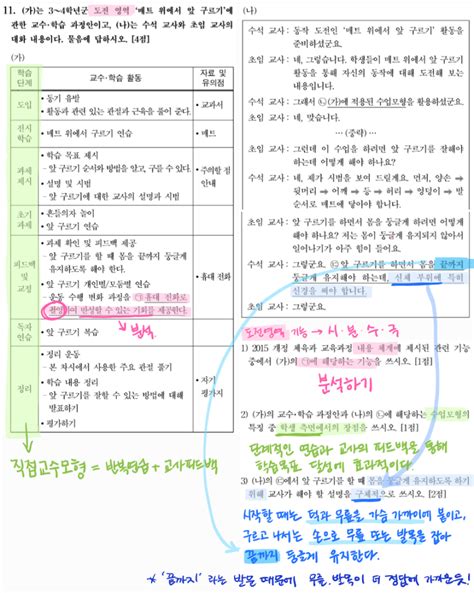 11. (가)는 3~4학년군 도전 영역 '매트 위에서 앞 구르기'에
관한 교수·학습 과정안이고, (나)는 수석 교사와 초임 교사의
대화 내용이다. 물음에 답하시오. [4점]
(가)
학습
단계
교수·학습 활동
자료 및
유의점
도입
• 동기 유발
• 활동과 관련 있는 관절과 근육을 풀어 준다.
• 교과서
전시
학습
• 매트 위에서 구르기 연습
• 매트
과제
제시
• 학습 목표 제시
- 앞 구르기 순서와 방법을 알고, 구를 수 있다.
• 설명 및 시범
- 앞 구르기에 대한 교사의 설명과 시범
• 주의할 점
안내
초기
과제
• 흔들의자 놀이
• 앞 구르기 연습
피드백
및
교정
• 과제 확인 및 피드백 제공
- 앞 구르기를 할 때 몸을 끝까지 둥글게
유지하도록 해야 한다.
• 앞 구르기 개인별/모둠별 연습
- 운동 수행 변화 과정을 ㉠ 휴대 전화로
촬영하여 반성할 수 있는 기회를 제공한다.
• 휴대 전화
분석.
독자
연습
• 앞 구르기 복습
정리
• 정리 운동
- 본 차시에서 사용한 주요 관절 풀기
• 학습 내용 정리
- 앞 구르기를 잘할 수 있는 방법에 대해
발표하기
• 평가하기
• 자기
평가지
직접교수모형 = 반복연습 + 교사피드백
(나)
수석 교사 : 동작 도전인 '매트 위에서 앞 구르기' 활동을
준비하셨군요.
초임 교사 : 네, 그렇습니다. 학생들이 매트 위에서 앞 구르기
활동을 통해 자신의 동작에 대해 도전해 보는
내용입니다.
수석 교사 : 그래서 ㉡(가)에 적용된 수업모형을 활용하셨군요.
초임 교사 : 네, 맞습니다.
… (중략) …
초임 교사 : 그런데 이 수업을 하려면 앞 구르기를 잘해야
하는데 어떻게 해야 하나요?
수석 교사 : 네, 제가 시범을 보여 드릴게요. 먼저, 양손 →
뒷머리 → 어깨 → 등 → 허리 → 엉덩이 → 발
순서로 매트에 닿아야 합니다.
초임 교사 : 앞 구르기를 하면서 몸을 둥글게 하려면 어떻게
해야 하나요? 저는 몸이 둥글게 유지되지 않아서
일어나기가 아주 힘이 들어요.
수석 교사 : 그렇군요. ㉢ 앞 구르기를 하면서 몸을 끝까지
둥글게 유지해야 하는데, 신체 부위에 특히
신경을 써야 합니다.
초임 교사 : 그렇군요.
도전영역 기능 → 시·분·수·극
1) 2015 개정 체육과 교육과정 내용 체계에 제시된 관련 기능
중에서 (가)의 ㉠에 해당하는 기능을 쓰시오. [1점]
분석하기
2) (가)의 교수·학습 과정안과 (나)의 ㉡에 해당하는 수업모형의
특징 중 학생 측면에서의 장점을 쓰시오. [1점]
단계적인 연습과 교사의 피드백을 통해
학습목표 달성에 효과적이다.
3) (나)의 ㉢에서 앞 구르기를 할 때 몸을 둥글게 유지하도록 하기
위해 교사가 해야 할 설명을 구체적으로 쓰시오. [2점]
시작할 때는 턱과 무릎을 가슴 가까이에 붙이고,
구르고 나서는 손으로 무릎 또는 발목을 잡아
끝까지 둥글게 유지한다.
* '끝까지' 라는 발문 때문에 무릎, 발목이 더 정답에 가까운듯!